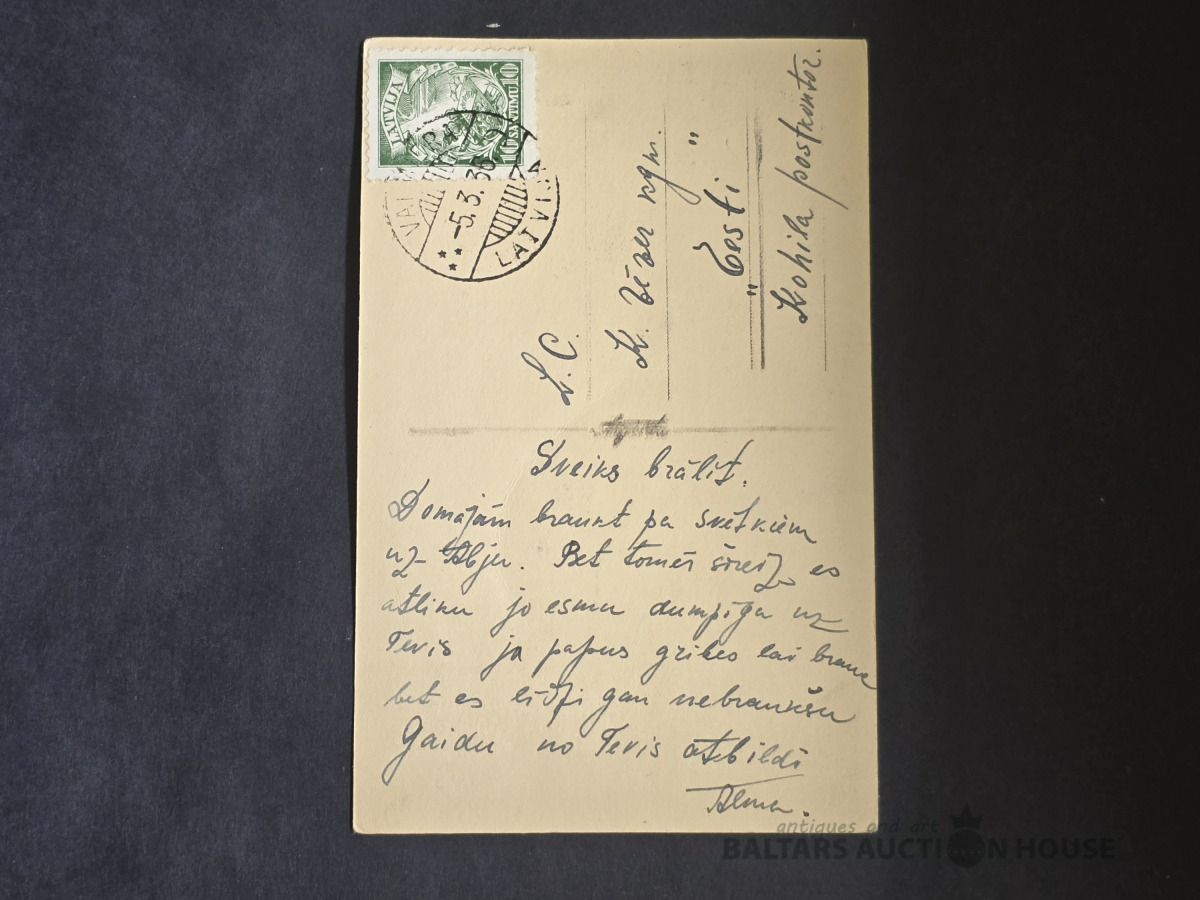 LATVIJA
10 SANTIMU 10
-5.3.36.
LATVIJA
L. C.
K. Vēzer kgm.
" Eesti "
Kohila postkontor.
Sveiks brālīt.
Domājām braukt pa svētkiem
uz Abju. Bet tomēr šoreiz es
atlieku jo esmu dumpīga uz
Tevis ja papus gribes lai brauc
bet es līdzi gan nebraukšu
Gaidu no Tevis atbildi
Alma.
antiques and art
BALTARS AUCTION HOUSE